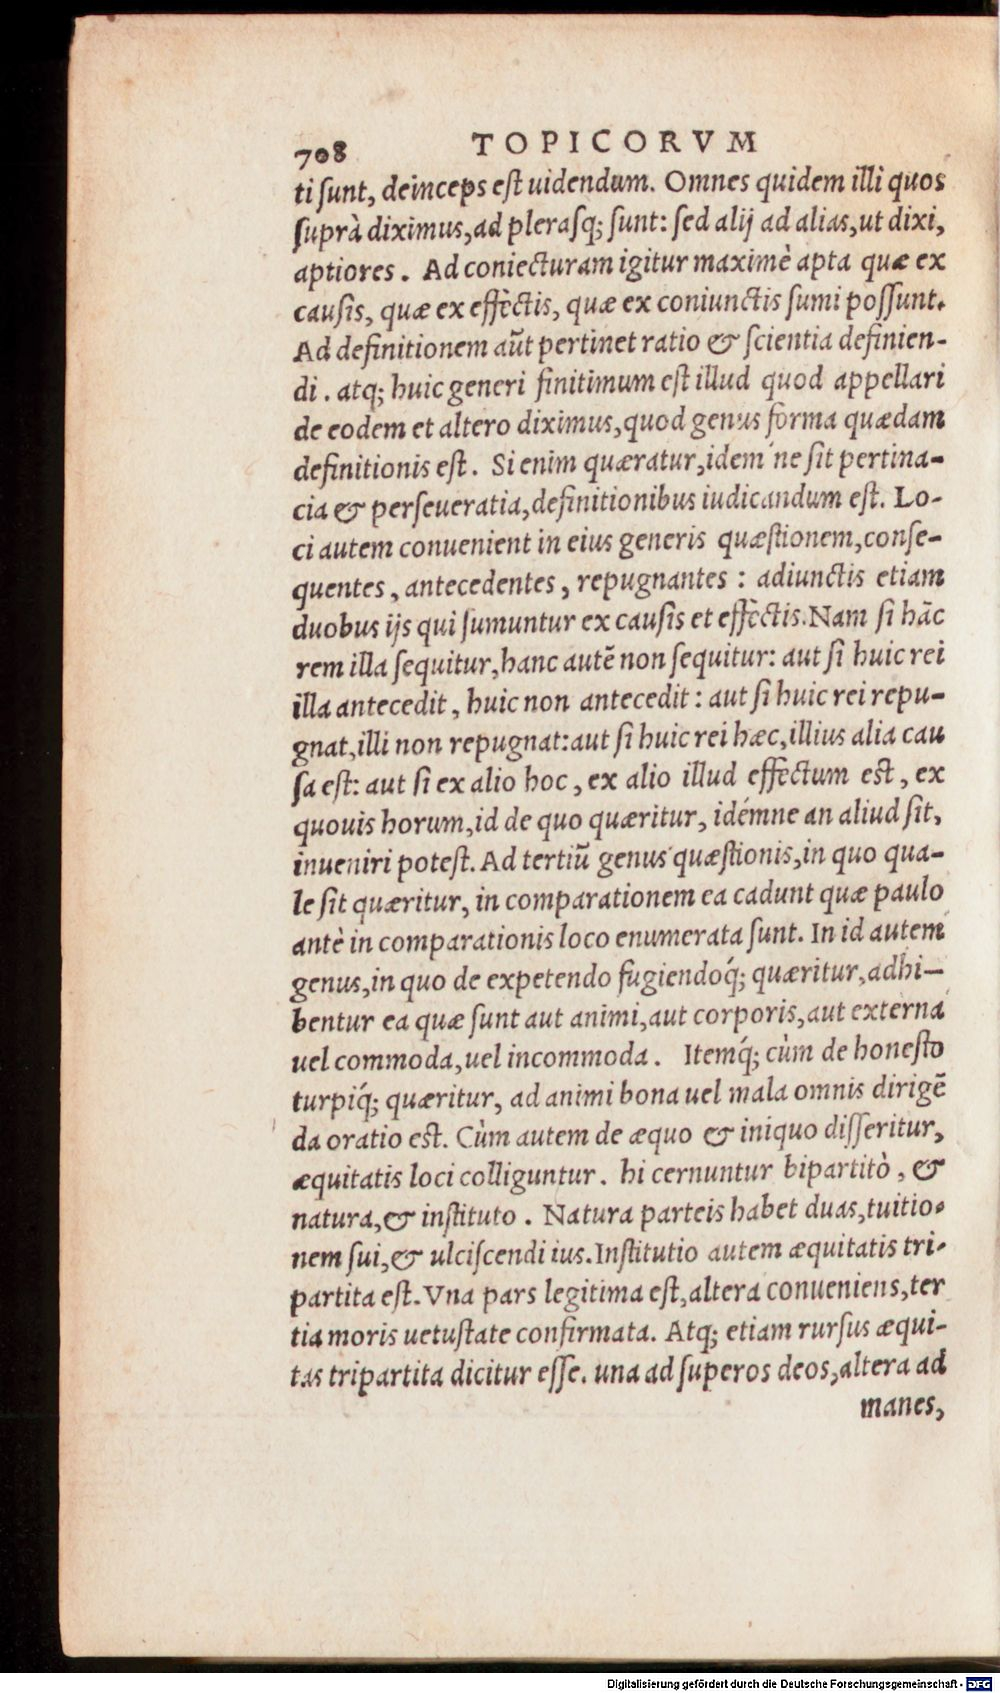 708 TOPICORVM
ti ſunt, deinceps eſt uidendum. Omnes quidem illi quos
ſuprà diximus, ad pleraſq; ſunt: ſed alij ad alias, ut dixi,
aptiores. Ad coniecturam igitur maximè apta quæ ex
cauſis, quæ ex effectis, quæ ex coniunctis ſumi poſſunt.
Ad definitionem aūt pertinet ratio & ſcientia definien-
di. atq; huic generi finitimum eſt illud quod appellari
de eodem et altero diximus, quod genus forma quædam
definitionis eſt. Si enim quæratur, idem'ne ſit pertina-
cia & perſeueratia, definitionibus iudicandum eſt. Lo-
ci autem conuenient in eius generis quæſtionem, conſe-
quentes, antecedentes, repugnantes: adiunctis etiam
duobus ijs qui ſumuntur ex cauſis et effectis. Nam ſi hāc
rem illa ſequitur, hanc autē non ſequitur: aut ſi huic rei
illa antecedit, huic non antecedit: aut ſi huic rei repu-
gnat, illi non repugnat: aut ſi huic rei hæc, illius alia cau
ſa eſt: aut ſi ex alio hoc, ex alio illud effectum eſt, ex
quouis horum, id de quo quæritur, idémne an aliud ſit,
inueniri poteſt. Ad tertiū genus quæſtionis, in quo qua-
le ſit quæritur, in comparationem ea cadunt quæ paulo
antè in comparationis loco enumerata ſunt. In id autem
genus, in quo de expetendo fugiendoq́; quæritur, adhi-
bentur ea quæ ſunt aut animi, aut corporis, aut externa
uel commoda, uel incommoda. Itemq́; cùm de honeſto
turpiq́; quæritur, ad animi bona uel mala omnis dirigē
da oratio eſt. Cùm autem de æquo & iniquo diſſeritur,
æquitatis loci colliguntur. hi cernuntur bipartitò, &
natura, & inſtituto. Natura parteis habet duas, tuitio-
nem ſui, & ulciſcendi ius. Inſtitutio autem æquitatis tri-
partita eſt. Vna pars legitima eſt, altera conueniens, ter
tia moris uetuſtate confirmata. Atq; etiam rurſus æqui-
tas tripartita dicitur eſſe. una ad ſuperos deos, altera ad
manes,
Digitalisierung gefördert durch die Deutsche Forschungsgemeinschaft - DFG